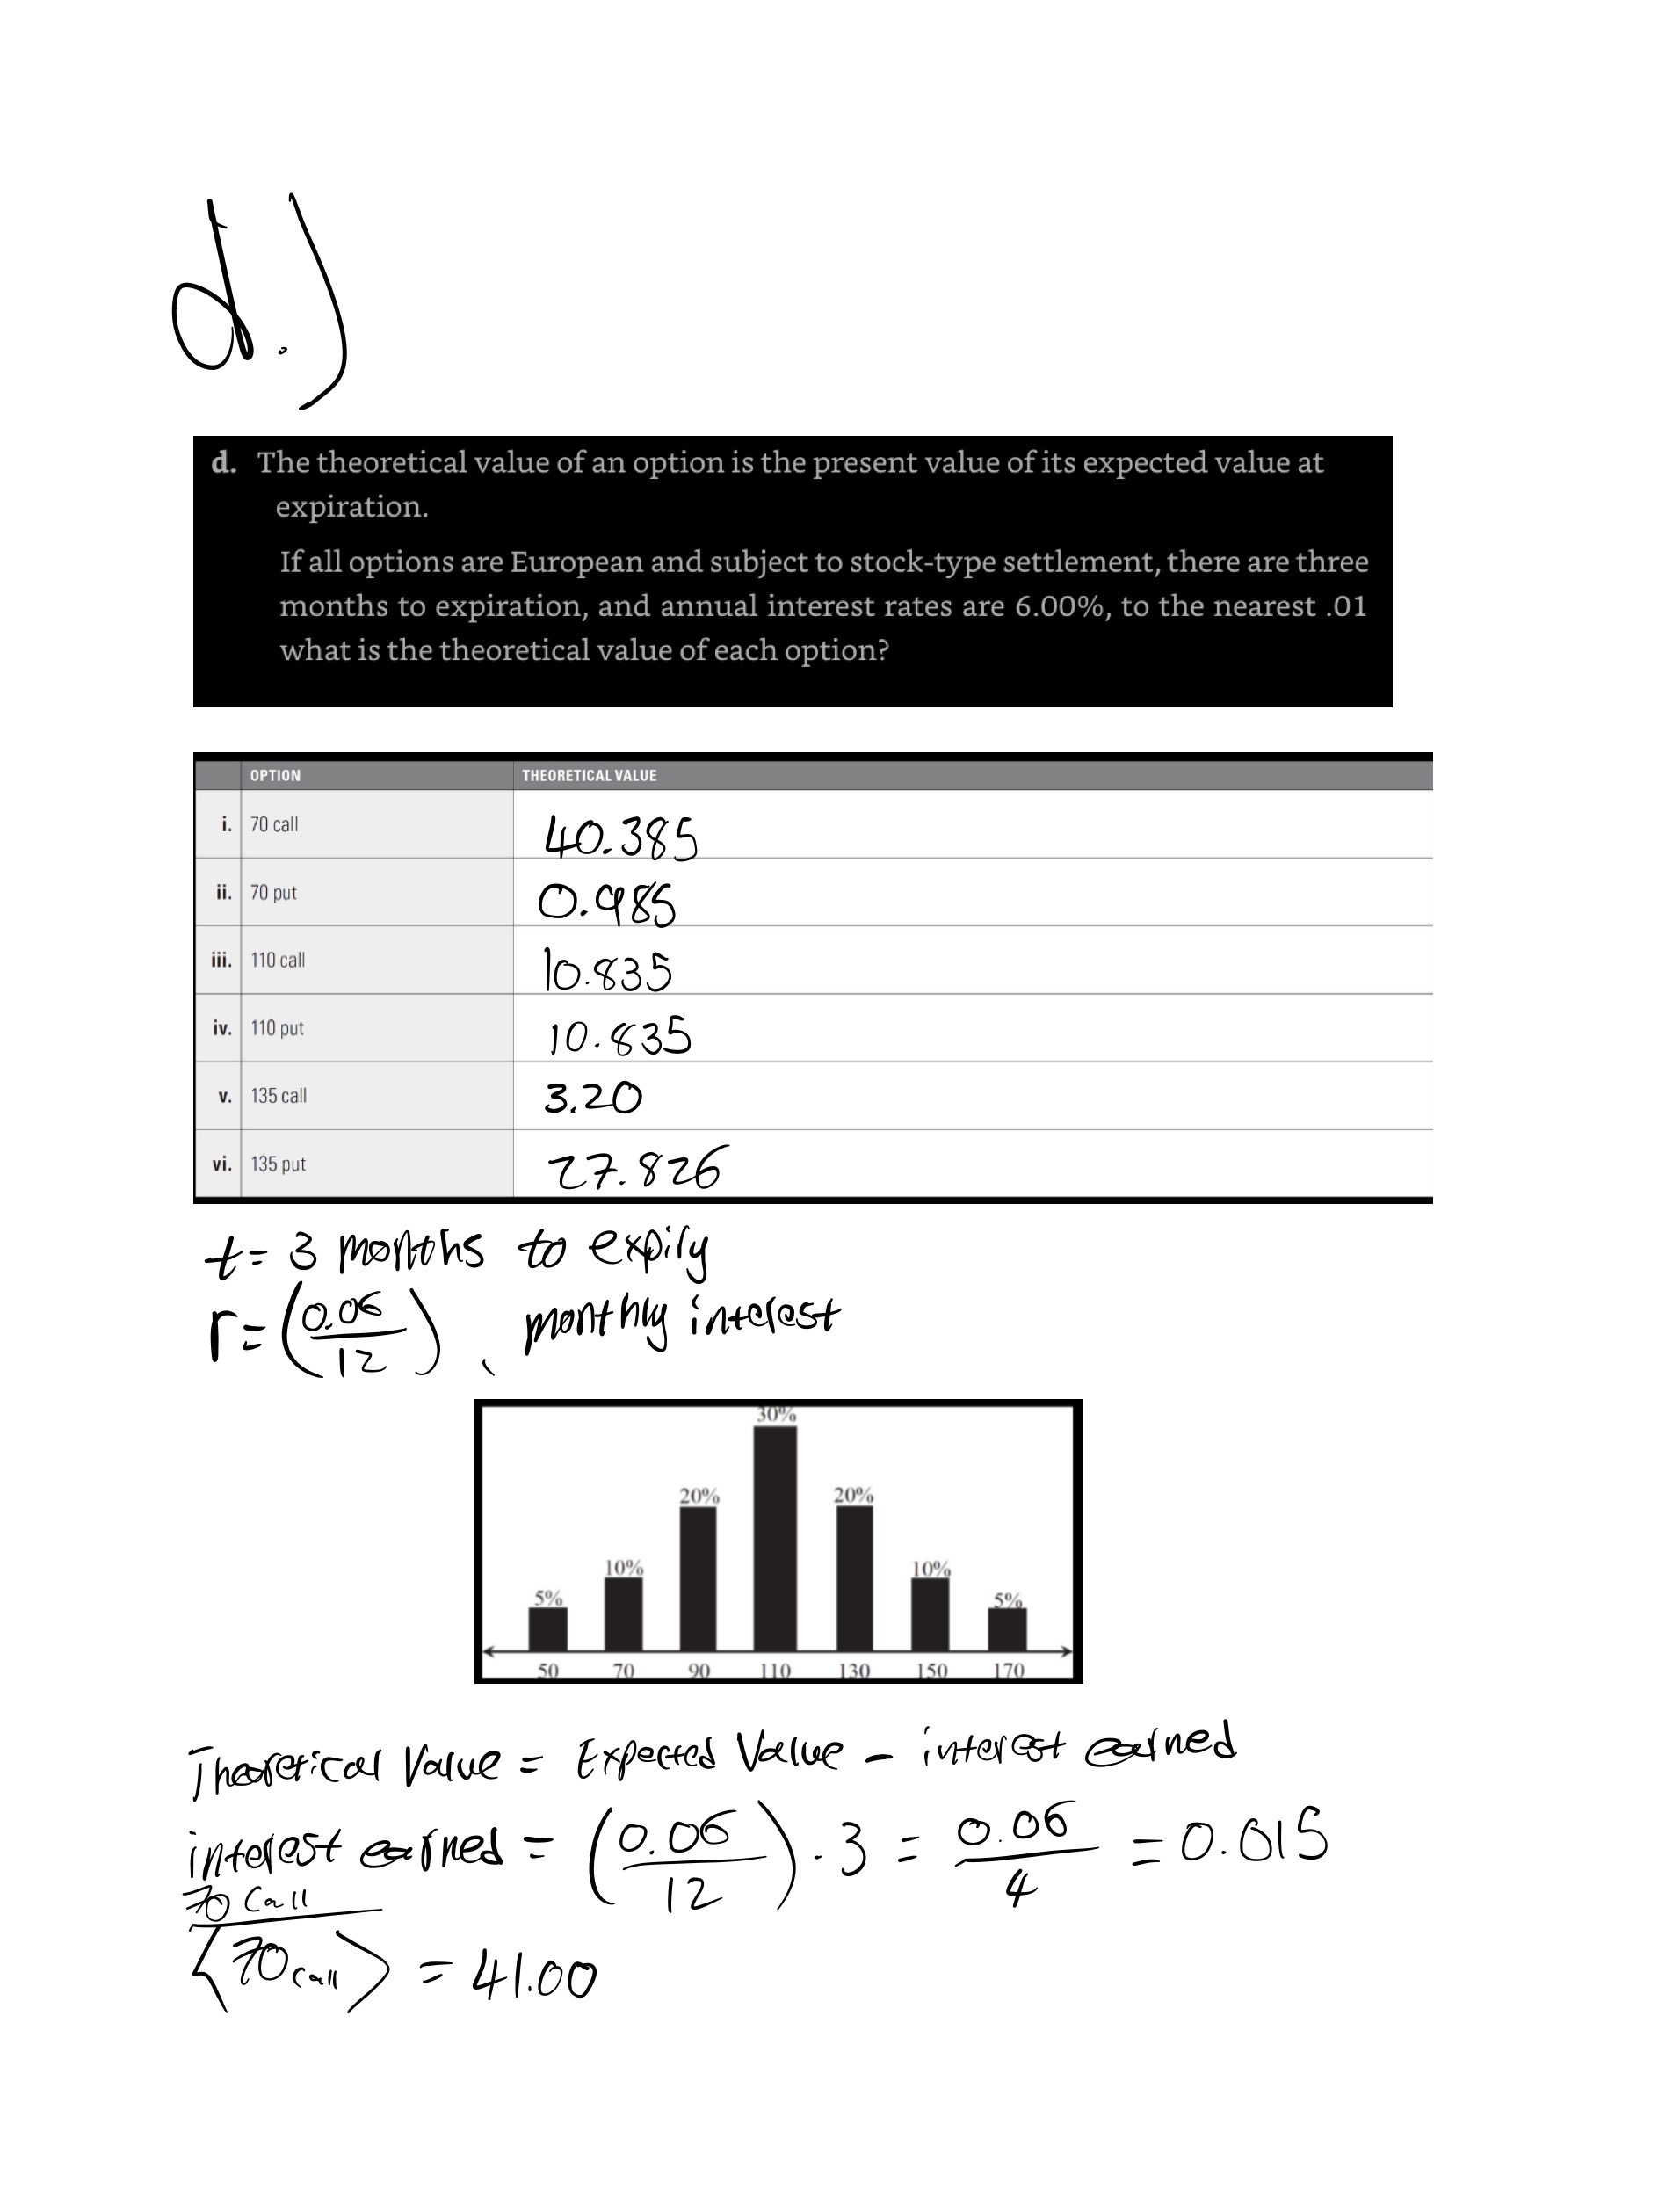 d.)
d. The theoretical value of an option is the present value of its expected value at
expiration.
If all options are European and subject to stock-type settlement, there are three
months to expiration, and annual interest rates are 6.00%, to the nearest .01
what is the theoretical value of each option?
OPTION THEORETICAL VALUE
i. 70 call 40.385
ii. 70 put 0.985
iii. 110 call 10.835
iv. 110 put 10.835
v. 135 call 3.20
vi. 135 put 27.826
t = 3 months to expiry
r = (0.06/12), monthly interest
30%
20% 20%
10% 10%
5% 5%
50 70 90 110 130 150 170
Theoretical Value = Expected Value - interest earned
interest earned = (0.06/12) · 3 = 0.06/4 = 0.015
70 Call
⟨70 call⟩ = 41.00